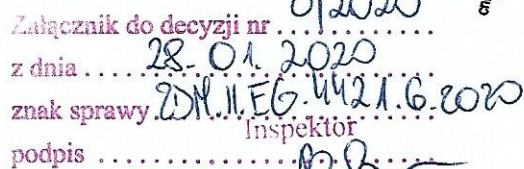 Załącznik do decyzji nr .............
z dnia .... 28-01.2020
znak sprawy ZDM.II.EG.4421.6.2020
Inspektor
podpis .................